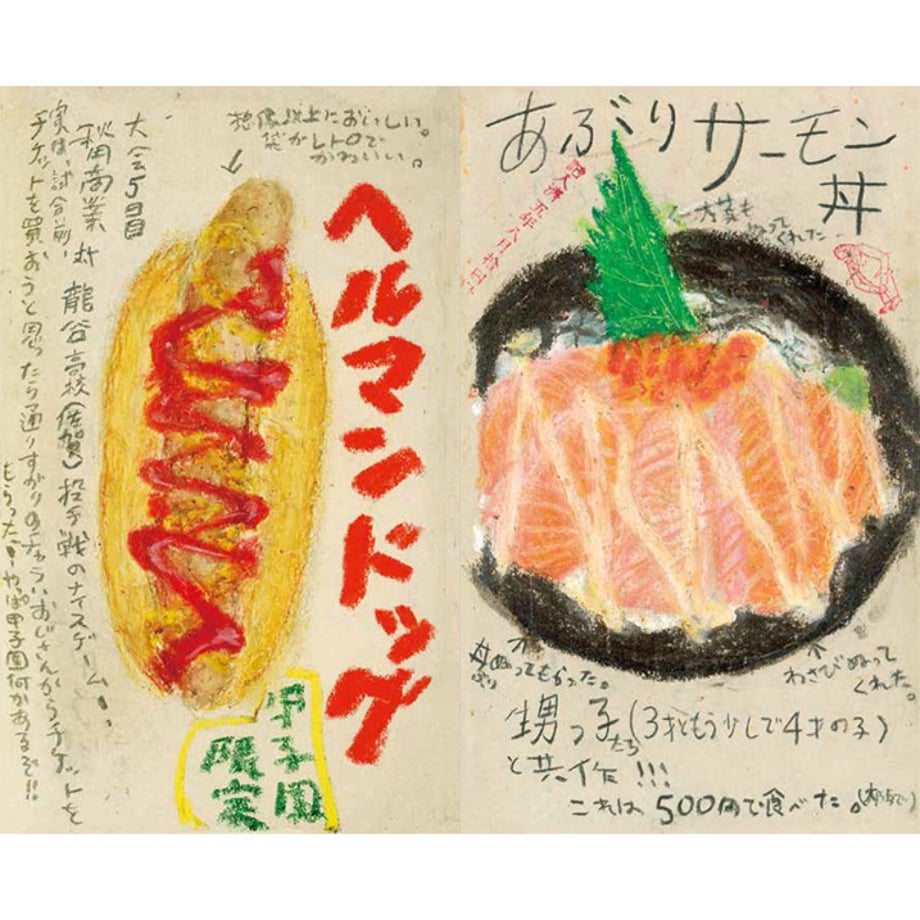 想像以上においしい。
袋がレトロで
かわいい。
ヘルマンドッグ
大会5日目
秋田商業 対 龍谷高校(佐賀) 投手戦のナイスゲーム!!
実は、試合前、
チケットを買おうと思ったら通りすがりの
おじさんからチケットを
もらった!!やっぱ甲子園何かあるぞ!!
甲子園
限定
あぶりサーモン
丼
大葉も
ぬって
くれた
五年八月
ぬってもらった。
わさびぬって
くれた。
甥っ子たち(3才ともう少しで4才の子)
と共作!!!
これは500円で食べた。